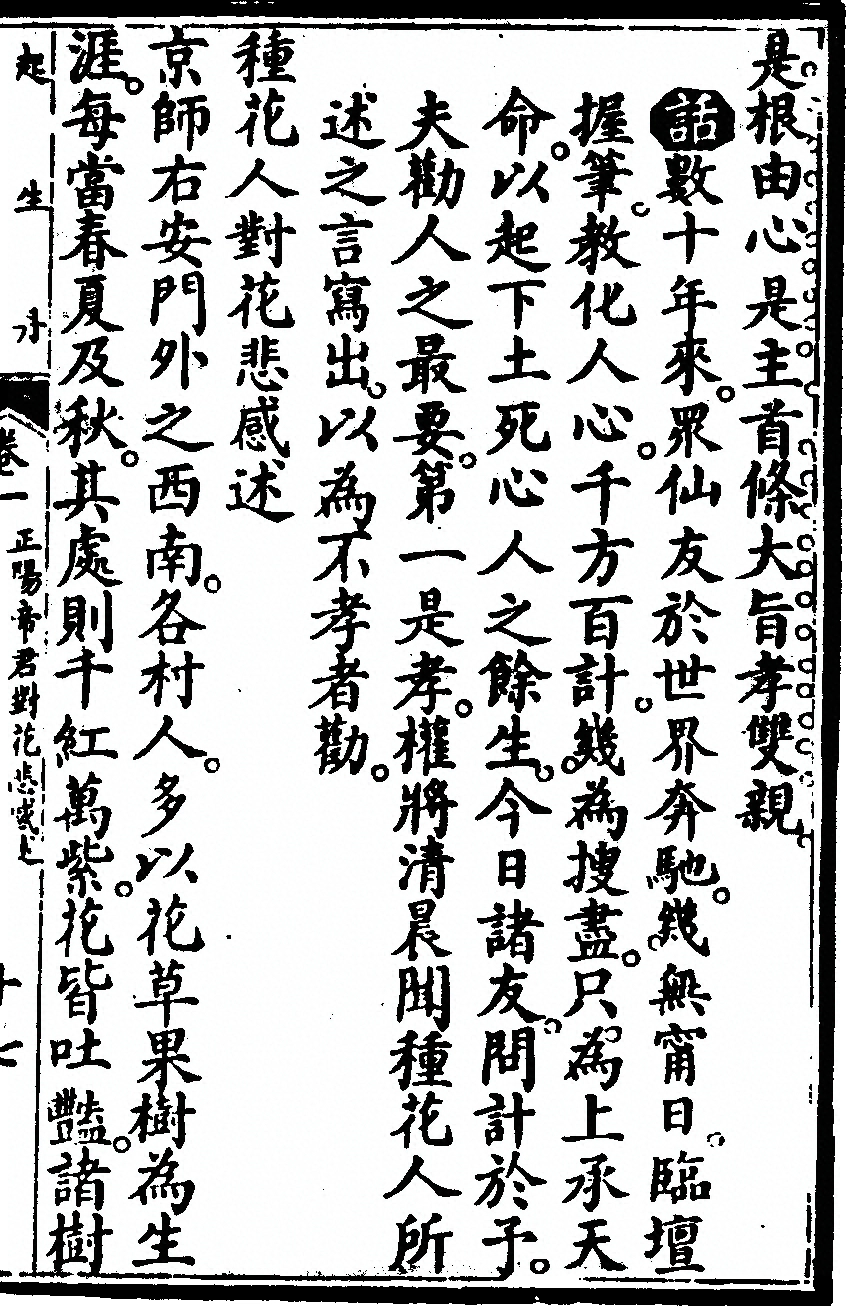 是根由心是主首條大旨孝雙親
話數十年來。眾仙友於世界奔馳。幾無甯日。臨壇
握筆。教化人心。千方百計。幾為搜盡。只為上承天
命。以起下土死心人之餘生。今日諸友。問計於予。
夫勸人之最要。第一是孝。權將清晨聞種花人所
述之言寫出。以為不孝者勸。
種花人對花悲感述
京師右安門外之西南。各村人。多以花草果樹為生
涯。每當春夏及秋。其處則千紅萬紫。花皆吐豔。諸樹
起生丹 卷一 正陽帝君對花悲感述 十七